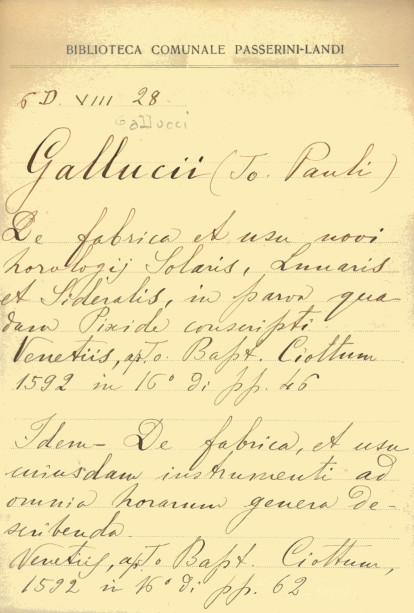 BIBLIOTECA COMUNALE PASSERINI-LANDI
6 D. VIII 28.
Gallucci
Gallucii (Jo. Pauli)
De fabrica et usu novi
horologij Solaris, Lunaris
et Sideralis, in parva qua
dam Pixide conscripti.
Venetiis, ap. Jo. Bapt. Ciottum
1592 in 16° di pp. 46
Idem - De fabrica, et usu
cuiusdam instrumenti ad
omnia horarum genera de-
scribenda.
Venetiis, ap. Jo Bapt. Ciottum,
1592 in 16° di pp. 62